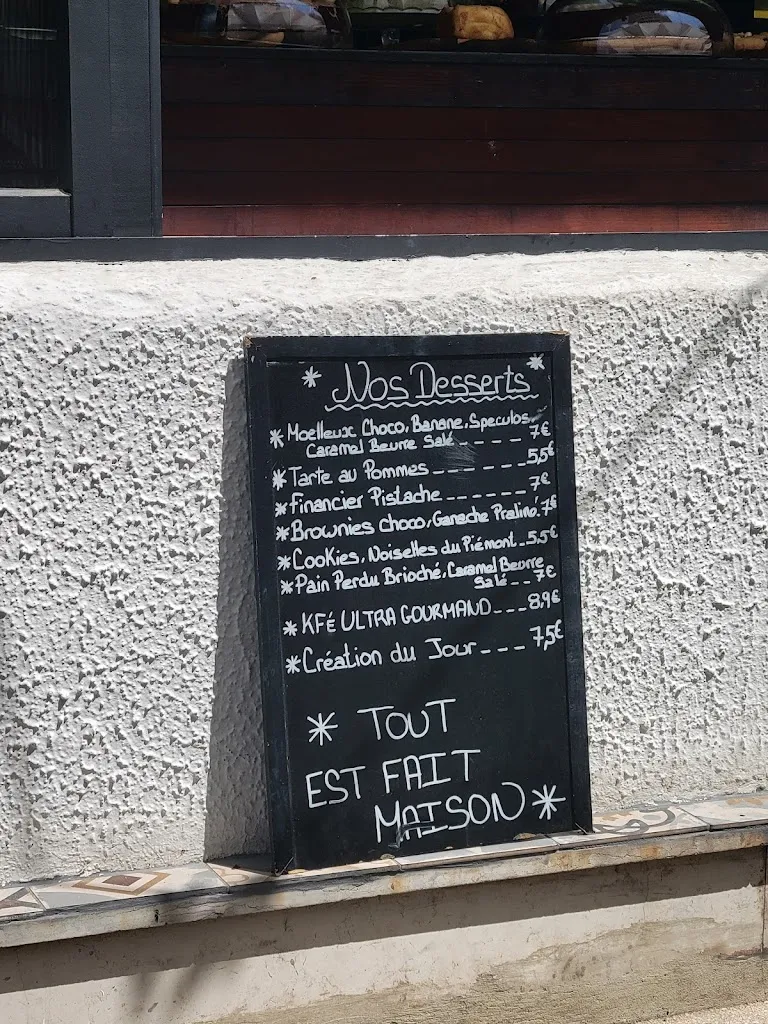 * Nos Desserts *
* Moelleux Choco, Banane, Speculos
Caramel Beurre Salé ---- 7€
* Tarte au Pommes ------ 5,5€
* Financier Pistache ----- 7€
* Brownies choco, Ganache Praliné, 7€
* Cookies, Noisettes du Piémont - 5,5€
* Pain Perdu Brioché, Caramel Beurre
Salé -- 7€
* KFÉ ULTRA GOURMAND --- 8,9€
* Création du Jour --- 7,5€
* TOUT
EST FAIT
MAISON *